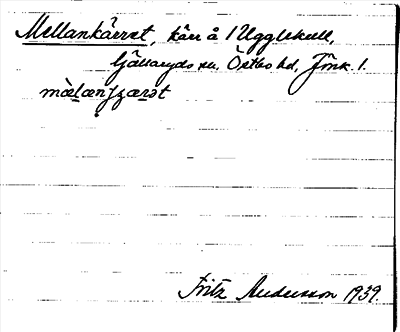 Mellankärret, kärr å 1 Ugglekull,
Gällaryds sn. Östbo hd, Jönk. l.
Fritz Andersson 1939.